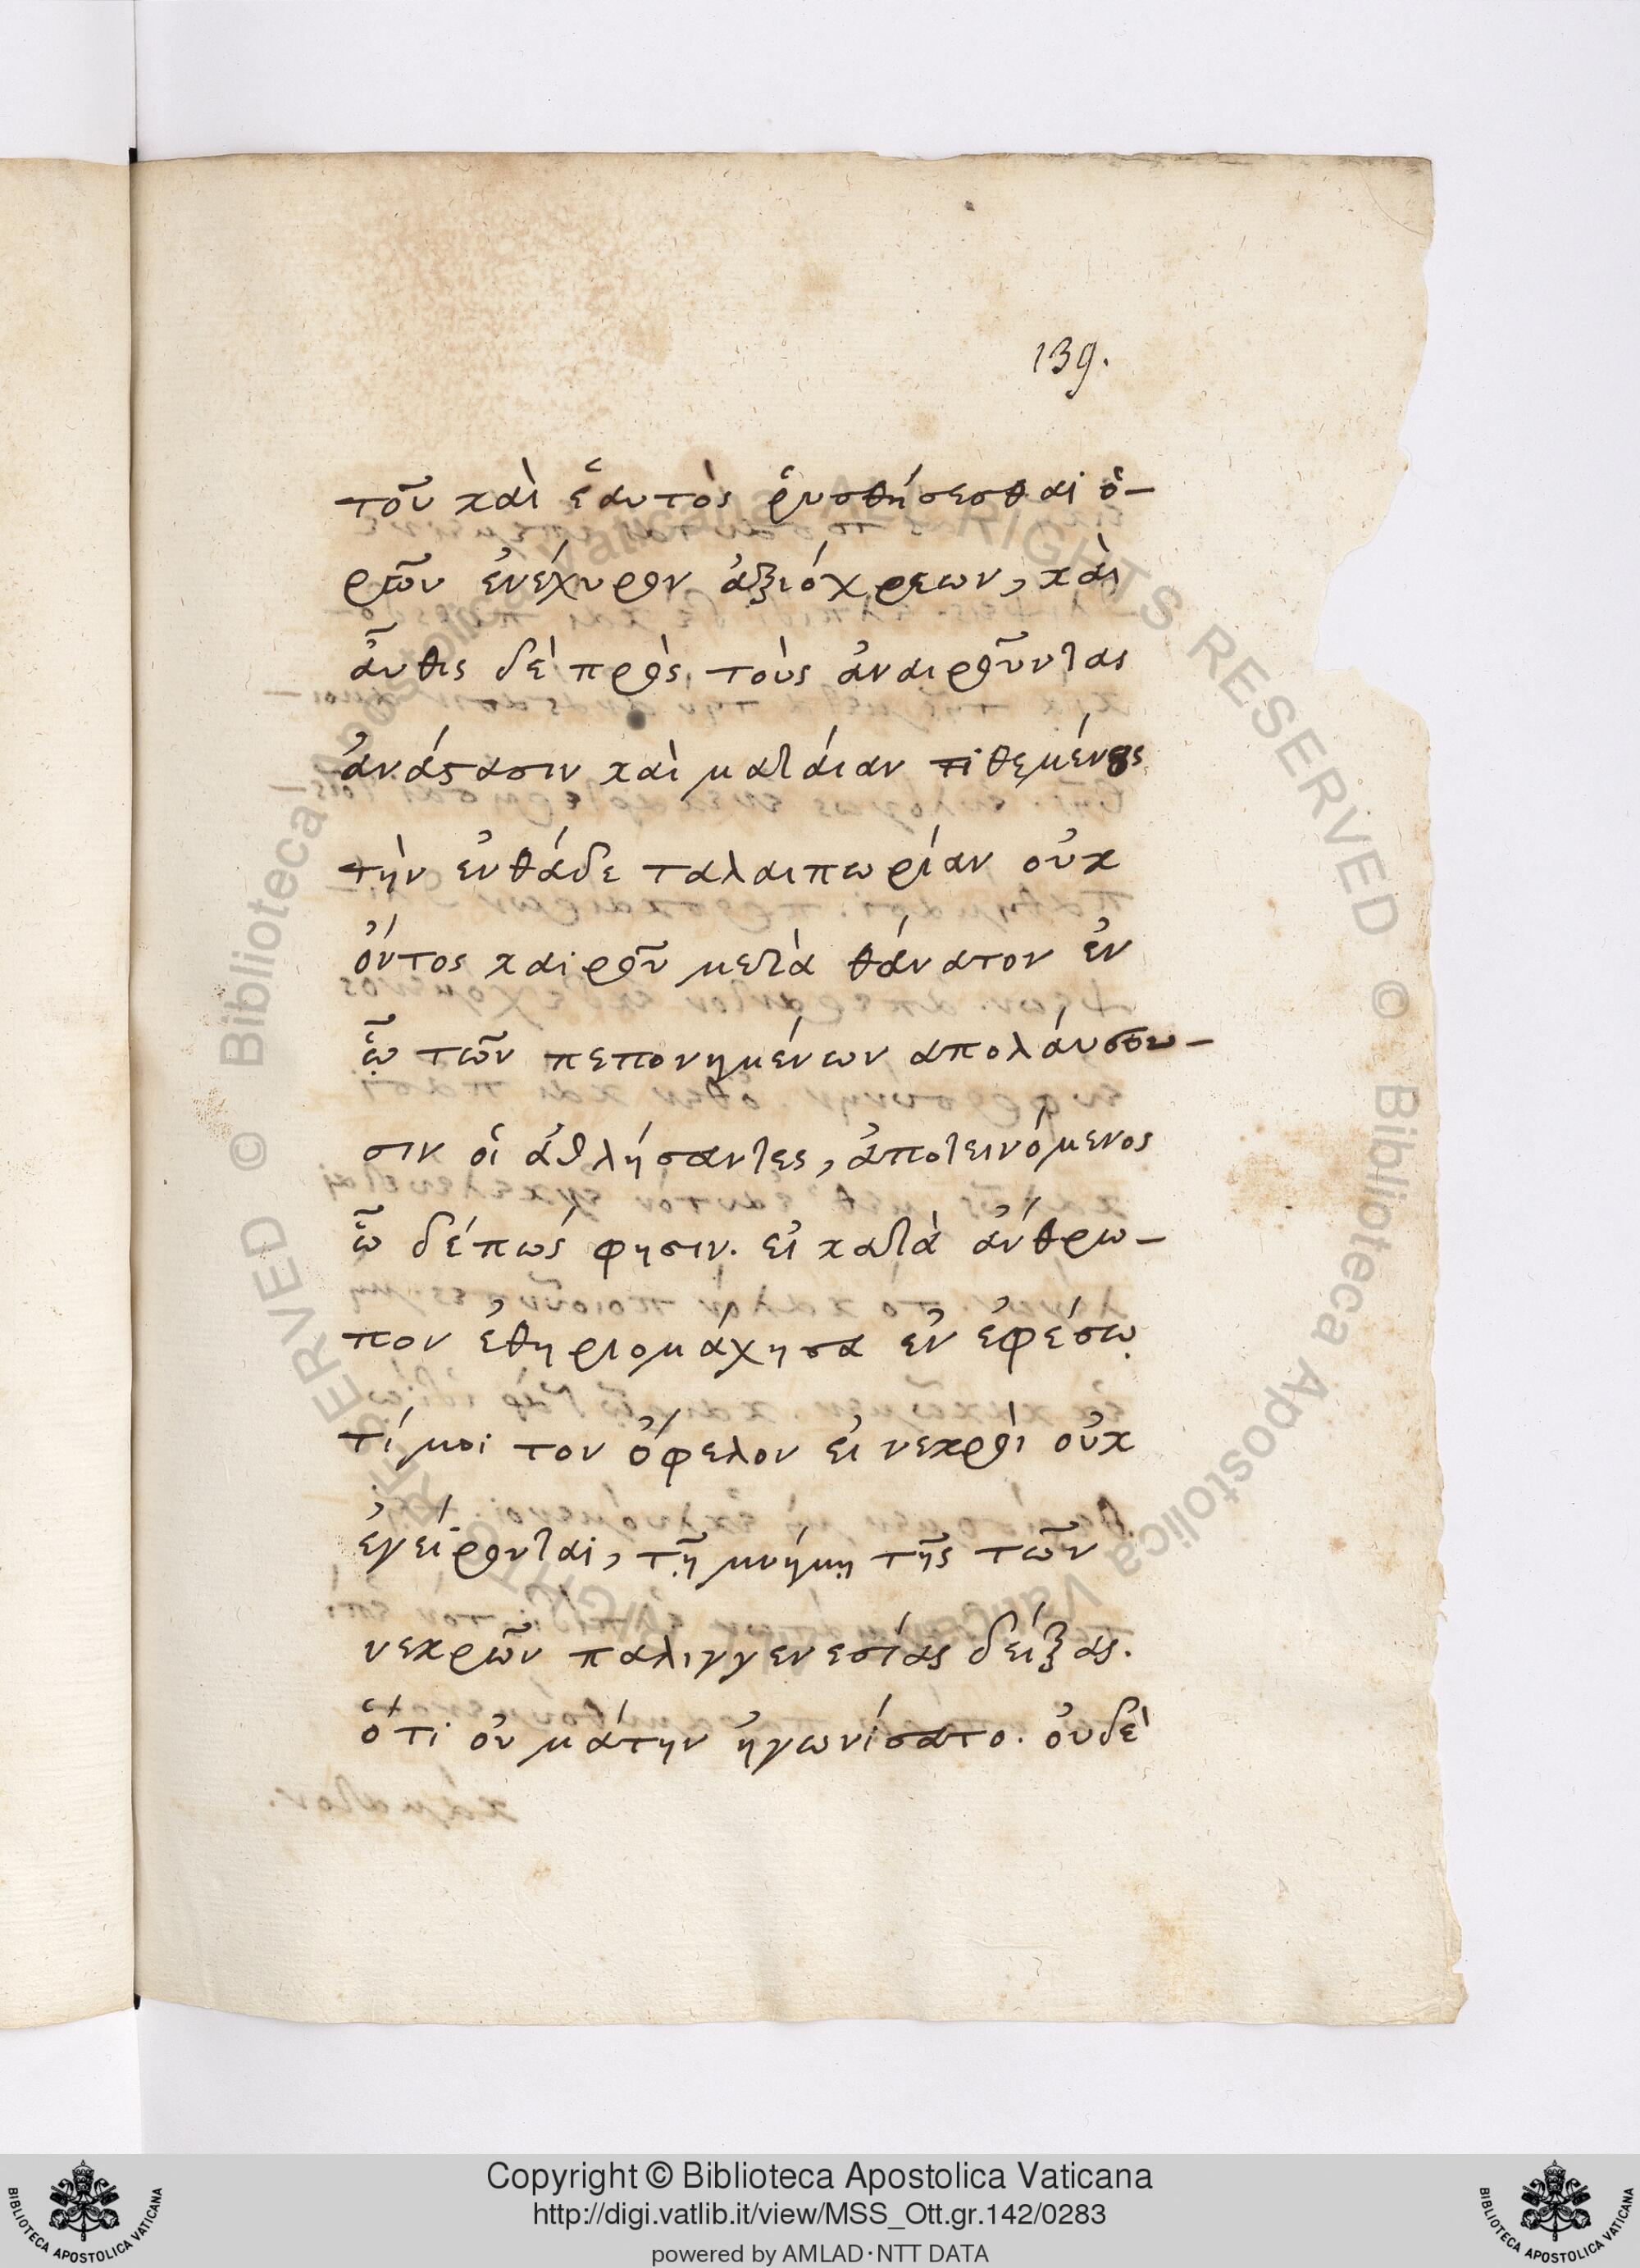 139.
τοῦ καὶ ἑαυτὸς ῥυσθήσεσθαι ὁ-
ρῶν ἐνέχυρον ἀξιόχρεων, καὶ
ἆυθις δὲ πρὸς τοὺς ἀναιροῦντας
ἀνάστασιν καὶ ματάιαν τιθεμένους
τὴν ἐνθάδε ταλαιπωρίαν οὐκ
ὄντος καιροῦ μετὰ θάνατον ἐν
ᾧ τῶν πεπονημένων απολάυσου-
σιν οἱ ἀθλήσαντες, ἀποτεινόμενος
ὧ δέ πώς φησιν. εἰ κατὰ ἄνθρω-
πον ἐθηριομάχησα ἐν ἐφέσῳ
τί μοι τον ὄφελον εἰ νεκροὶ οὐκ
ἐγείρονται, τῇ μνήμῃ τῆς τῶν
νεκρῶν παλιγγενεσίας δείξας.
ὅτι ὀυ μάτην ἠγωνίσατο. ὀυδὲ
Copyright © Biblioteca Apostolica Vaticana
http://digi.vatlib.it/view/MSS_Ott.gr.142/0283
powered by AMLAD·NTT DATA
BIBLIOTECA APOSTOLICA VATICANA
BIBLIOTECA APOSTOLICA VATICANA